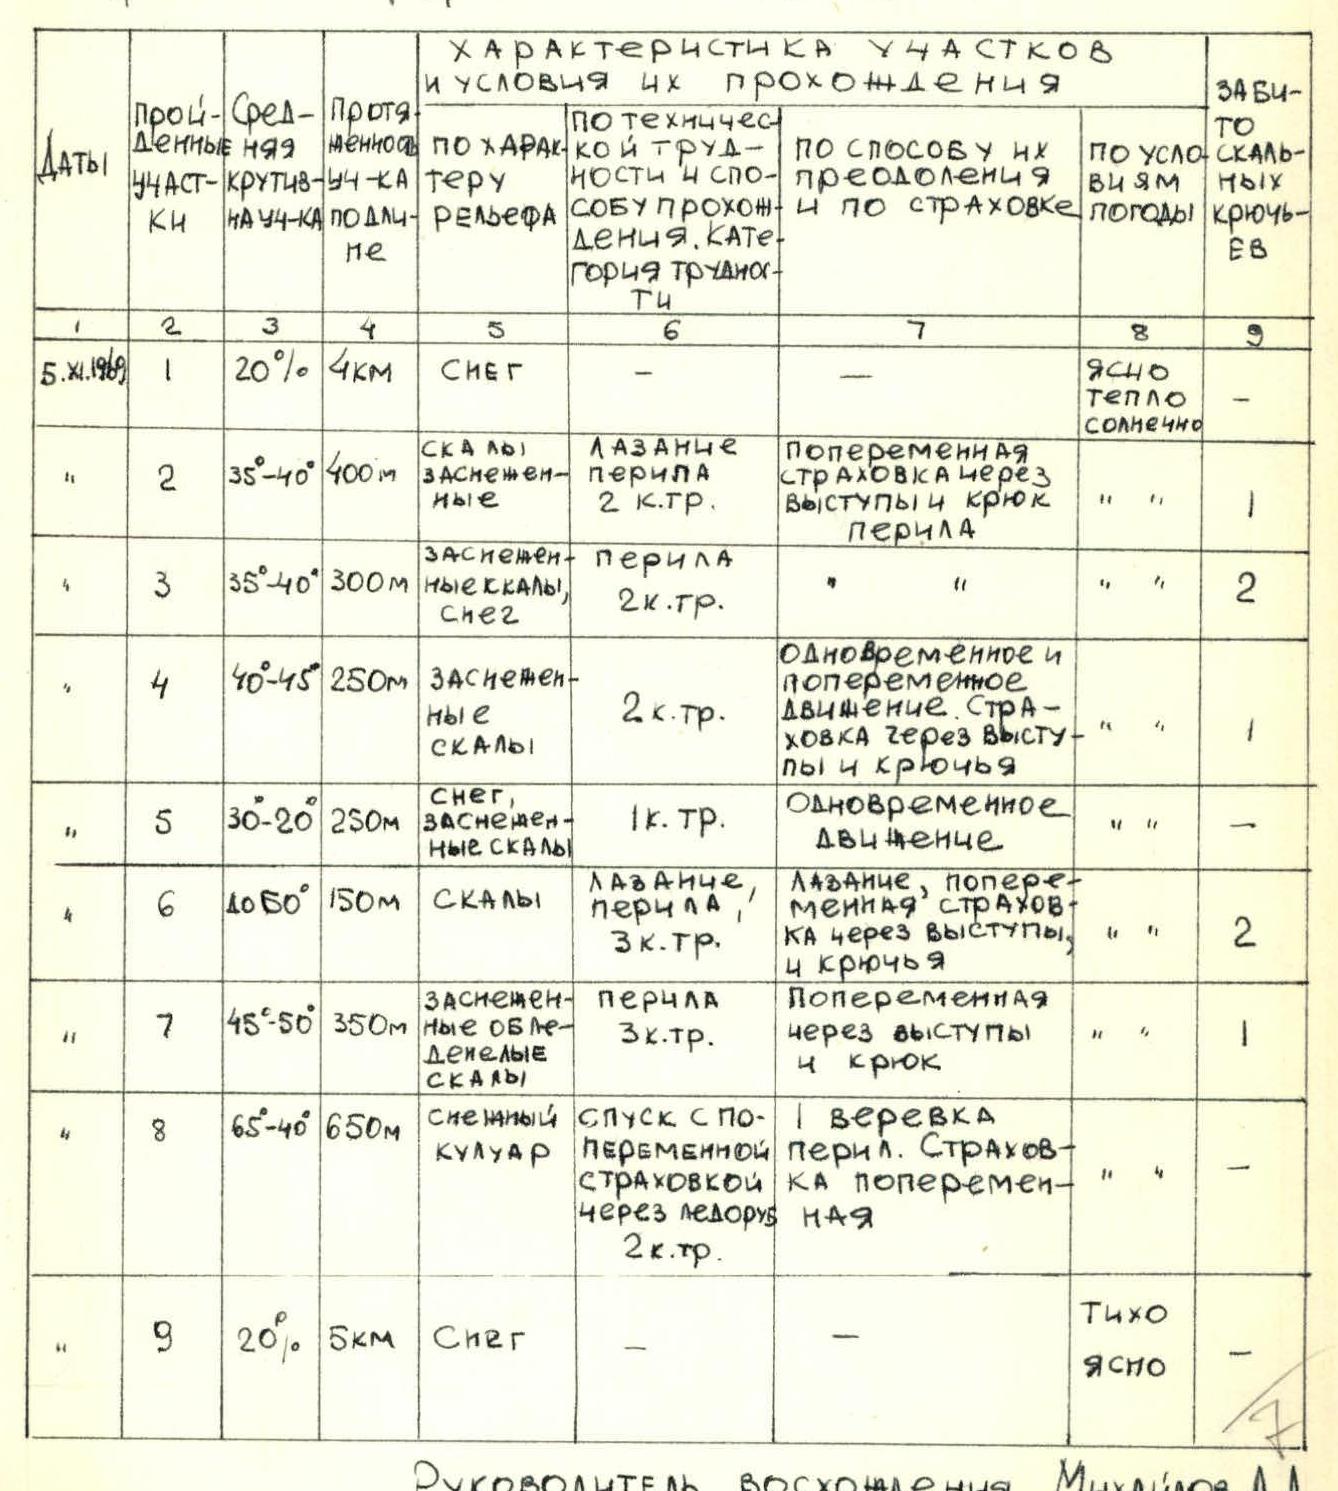 ХАРАКТЕРИСТИКА УЧАСТКОВ
И УСЛОВИЯ ИХ ПРОХОЖДЕНИЯ
ДАТЫ
ПРОЙ-
ДЕННЫЕ
УЧАСТ-
КИ
СРЕД-
НЯЯ
КРУТИЗ-
НА УЧ-КА
ПРОТЯ-
ЖЕННОСТЬ
УЧ-КА
ПО ДЛИ-
НЕ
ПО ХАРАК-
ТЕРУ
РЕЛЬЕФА
ПО ТЕХНИЧЕС-
КОЙ ТРУД-
НОСТИ И СПО-
СОБУ ПРОХОЖ-
ДЕНИЯ. КАТЕ-
ГОРИЯ ТРУДНОС-
ТИ
ПО СПОСОБУ ИХ
ПРЕОДОЛЕНИЯ
И ПО СТРАХОВКЕ
ПО УСЛО
ВИЯМ
ПОГОДЫ
ЗАБИ-
ТО
СКАЛЬ-
НЫХ
КРЮЧЬ-
ЕВ
1 2 3 4 5 6 7 8 9
5.XI.1969 1 20% 4КМ СНЕГ — —
ЯСНО
ТЕПЛО
СОЛНЕЧНО
—
" 2 35°-40° 400м
СКАЛЫ
ЗАСНЕЖЕН-
НЫЕ
ЛАЗАНИЕ
ПЕРИЛА
2 К.ТР.
ПОПЕРЕМЕННАЯ
СТРАХОВКА ЧЕРЕЗ
ВЫСТУПЫ И КРЮК
ПЕРИЛА
" " 1
" 3 35°-40° 300м
ЗАСНЕЖЕН-
НЫЕ СКАЛЫ,
СНЕГ
ПЕРИЛА
2К.ТР.
" " " " 2
" 4 40°-45° 250м
ЗАСНЕЖЕН-
НЫЕ
СКАЛЫ
2 К.ТР.
ОДНОВРЕМЕННОЕ И
ПОПЕРЕМЕННОЕ
ДВИЖЕНИЕ. СТРА-
ХОВКА ЧЕРЕЗ ВЫСТУ-
ПЫ И КРЮЧЬЯ
" " 1
" 5 30°-20° 250м
СНЕГ,
ЗАСНЕЖЕН-
НЫЕ СКАЛЫ
1К. ТР.
ОДНОВРЕМЕННОЕ
ДВИЖЕНИЕ
" " —
" 6 ДО 50° 150м СКАЛЫ
ЛАЗАНИЕ,
ПЕРИЛА,
3К.ТР.
ЛАЗАНИЕ, ПОПЕРЕ-
МЕННАЯ СТРАХОВ-
КА ЧЕРЕЗ ВЫСТУПЫ,
И КРЮЧЬЯ
" " 2
" 7 45°-50° 350м
ЗАСНЕЖЕН-
НЫЕ ОБЛЕ-
ДЕНЕЛЫЕ
СКАЛЫ
ПЕРИЛА
3К.ТР.
ПОПЕРЕМЕННАЯ
ЧЕРЕЗ ВЫСТУПЫ
И КРЮК
" " 1
" 8 65°-40° 650м
СНЕЖНЫЙ
КУЛУАР
СПУСК С ПО-
ПЕРЕМЕННОЙ
СТРАХОВКОЙ
ЧЕРЕЗ ЛЕДОРУБ
2К.ТР.
1 ВЕРЕВКА
ПЕРИЛ. СТРАХОВ-
КА ПОПЕРЕМЕН-
НАЯ
" " —
" 9 20% 5КМ СНЕГ — —
ТИХО
ЯСНО
—
7
РУКОВОДИТЕЛЬ ВОСХОЖДЕНИЯ МИХАЙЛОВ